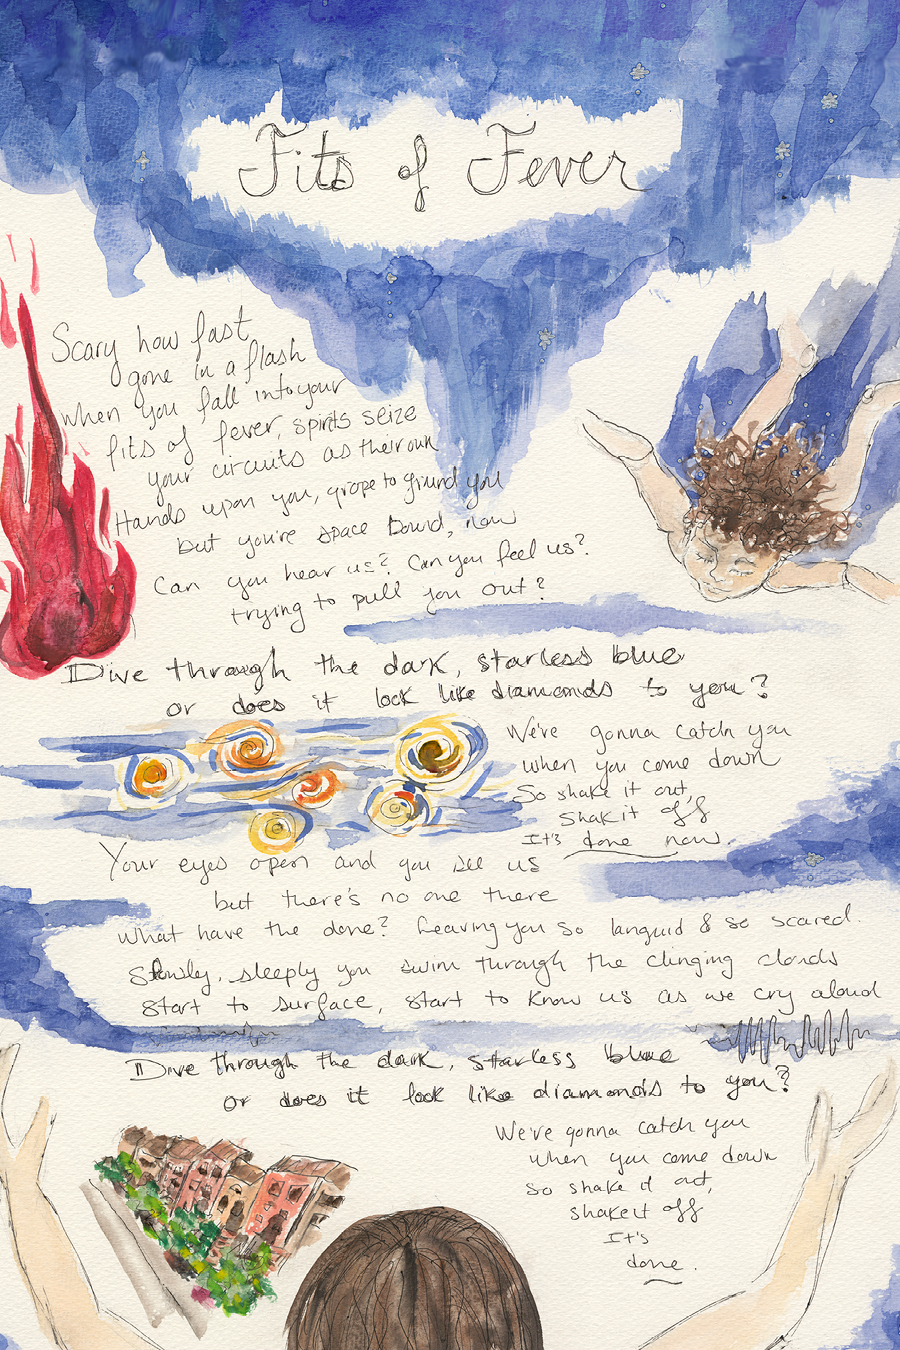 Fits of Fever
Scary how fast
gone in a flash
when you fall into your
fits of fever, spirits seize
your circuits as their own
Hands upon you, grope to ground you
but you're space bound, now
Can you hear us? Can you feel us?
trying to pull you out?
Dive through the dark, starless blue
or does it look like diamonds to you?
We're gonna catch you
when you come down
So shake it out,
shake it off
It's done now.
Your eyes open and you see us
but there's no one there
What have the done? Leaving you so languid & so scared.
Slowly, sleeply you swim through the clinging clouds
Start to surface, start to know us as we cry aloud
Dive through the dark, starless blue
or does it look like diamonds to you?
We're gonna catch you
when you come down
So shake it out,
shake it off
It's
done.